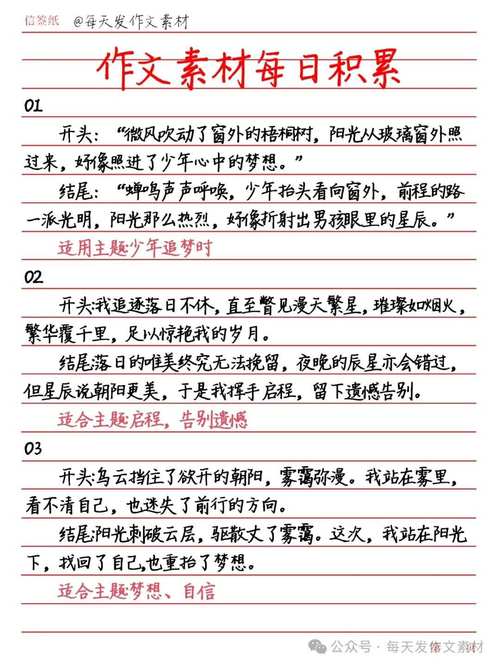 信签纸 @每天发作文素材
作文素材每日积累
01
开头：“微风吹动了窗外的梧桐树，阳光从玻璃窗外照
过来，好像照进了少年心中的梦想。”
结尾：“蝉鸣声声呼唤，少年抬头看向窗外，前程的路
一派光明，阳光那么热烈，好像折射出男孩眼里的星辰。”
适用主题:少年追梦时
02
开头:我追逐落日不休，直至瞥见漫天繁星，璀璨如烟火，
繁华覆千里，足以惊艳我的岁月。
结尾:落日的唯美终究无法挽留，夜晚的辰星亦会错过，
但星辰说朝阳更美，于是我挥手启程，留下遗憾告别。
适合主题:启程，告别遗憾
03
开头:乌云挡住了欲开的朝阳，雾霭弥漫。我站在雾里，
看不清自己，也迷失了前行的方向。
结尾:阳光刺破云层，驱散丈了雾霭。这次，我站在阳光
下，找回了自己,也重拾了梦想。
适合主题:梦想、自信
公众号·每天发作文素材